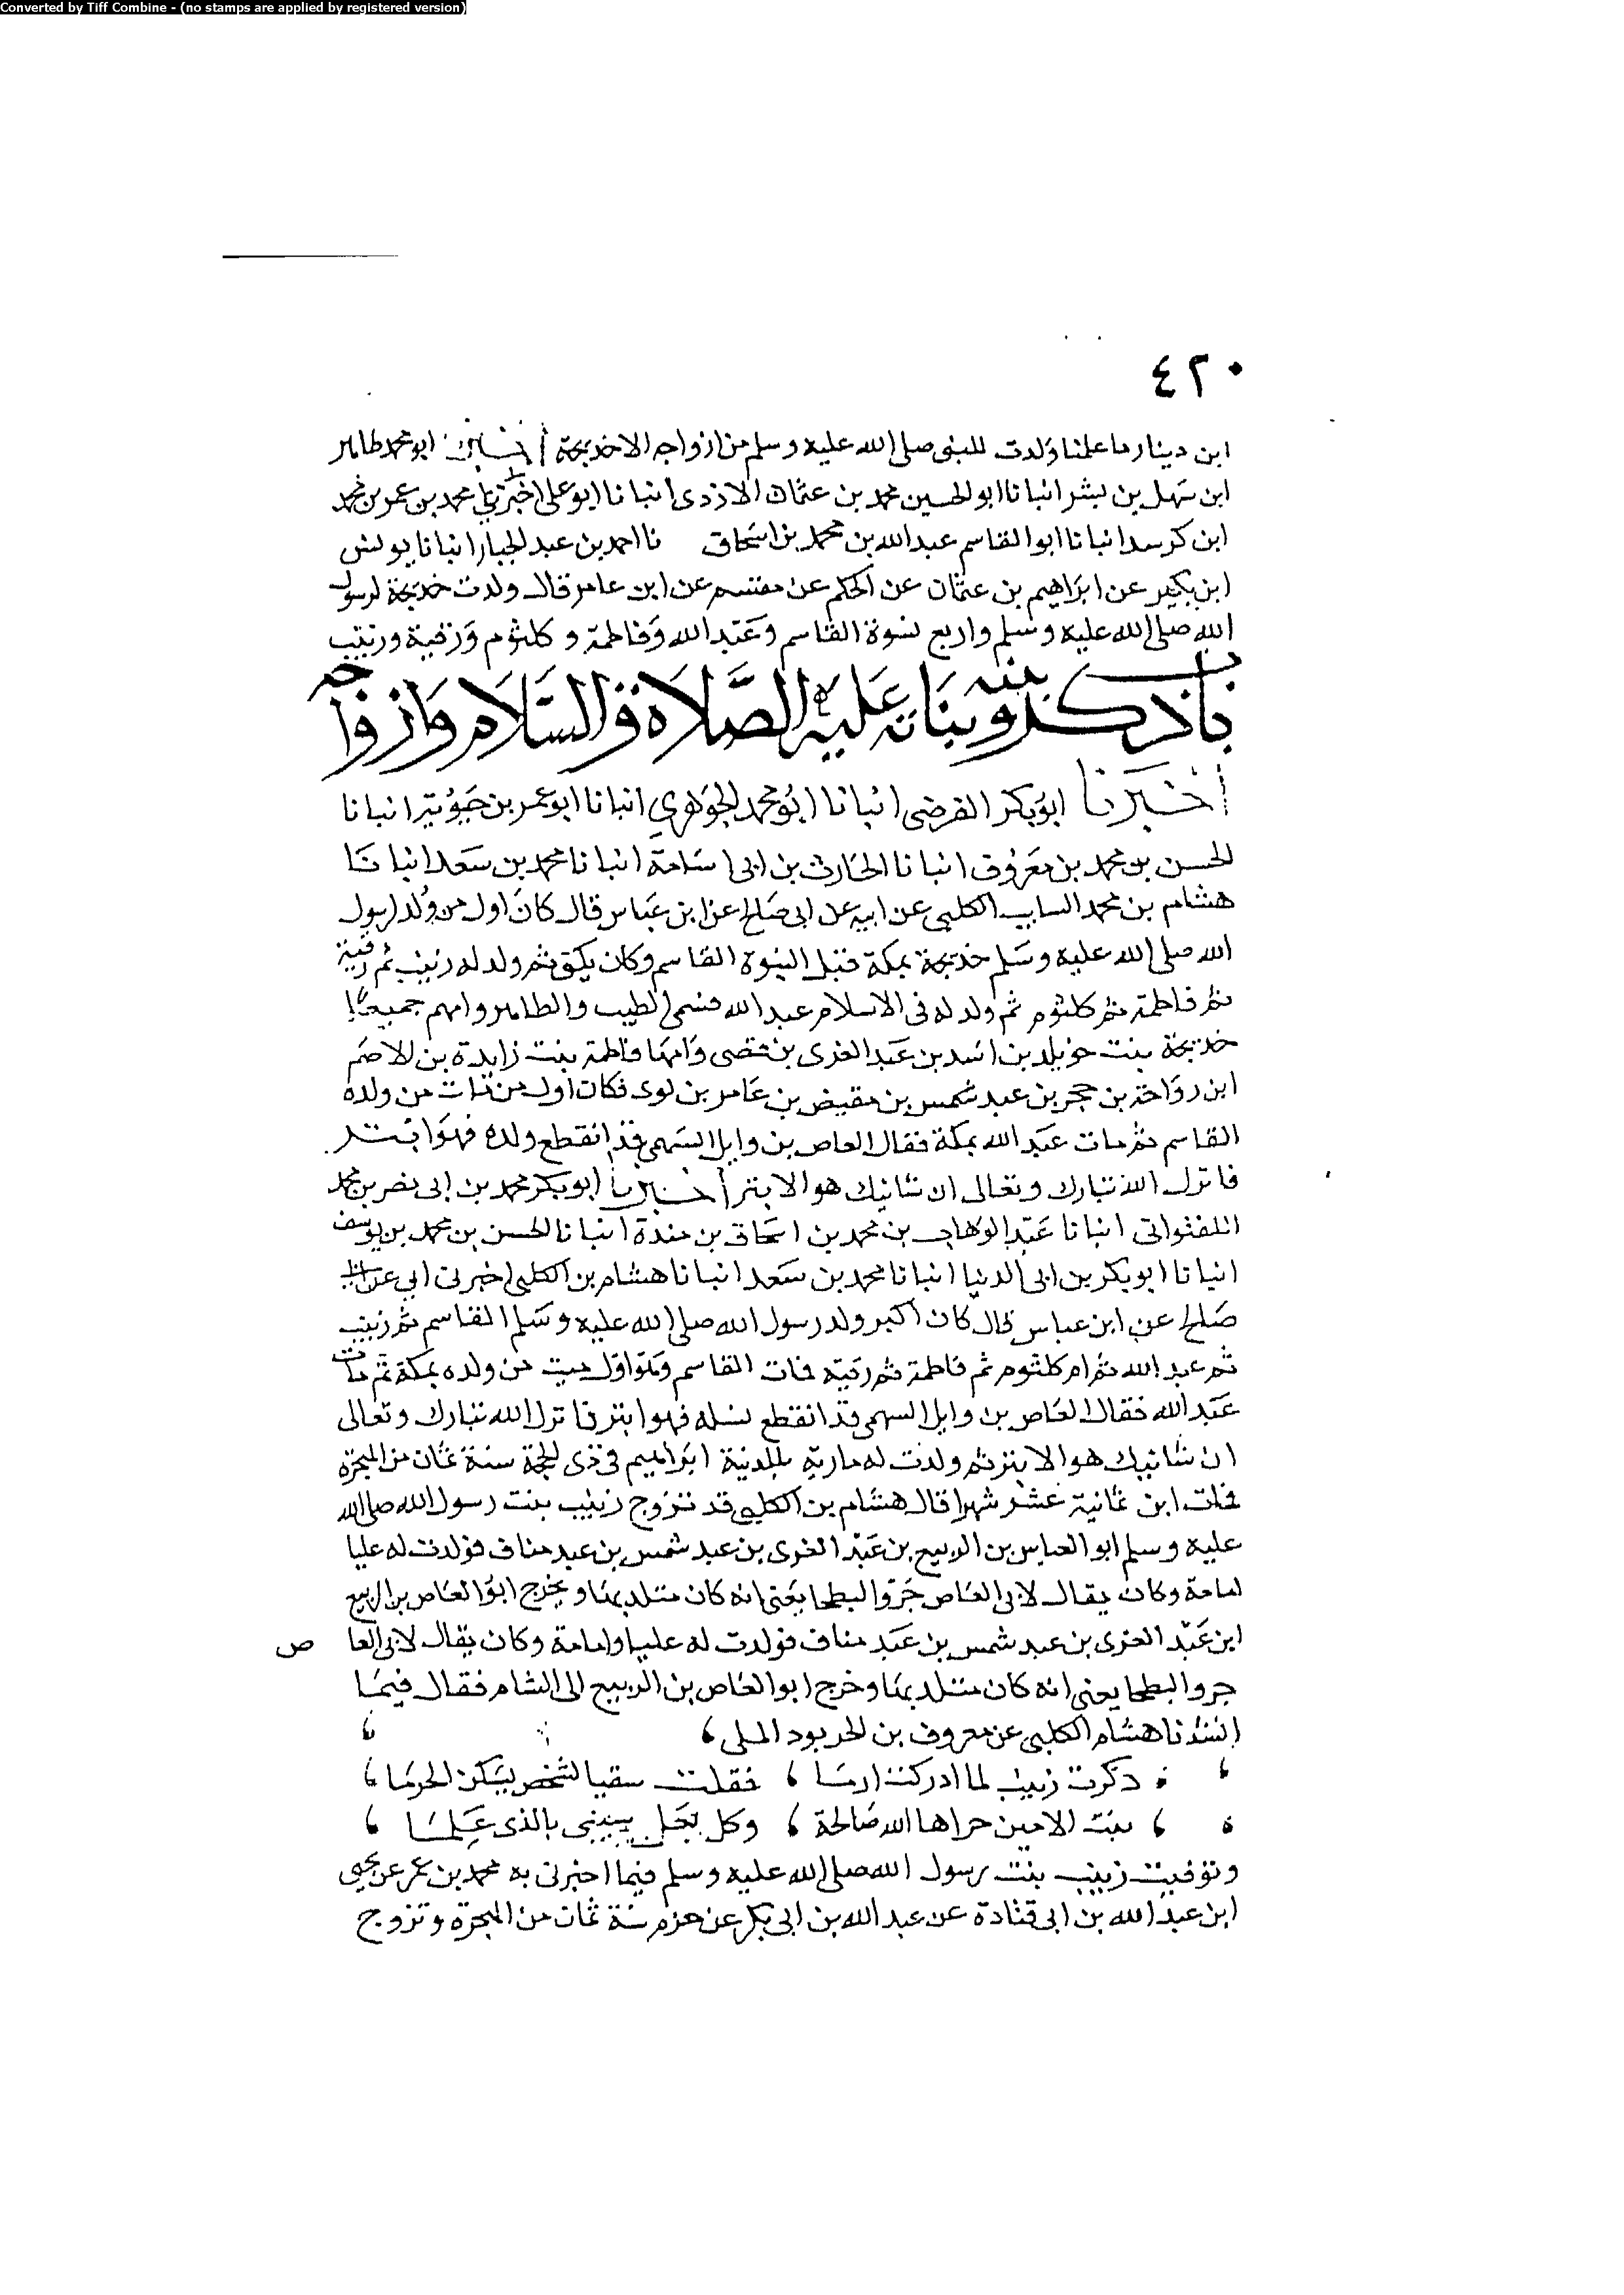 Converted by Tiff Combine - (no stamps are applied by registered version)
٤٢٠
ابن دينار ما علمنا ولدت للنبى صلى الله عليه وسلم من ازواجه الا خديجة أخبرنا ابو محمد طاهر
ابن سهل بن بشر انبانا ابو الحسين محمد بن عثمان الازدى انبانا ابو على محمد بن عمر بن محمد
ابن كرسد انبانا ابو القاسم عبد الله بن محمد بن اسحاق نا احمد بن عبد الجبار انبانا يونس
ابن بكير عن ابراهيم بن عثمان عن الحكم عن مقسم عن ابن عامر قال ولدت خديجة لرسول
الله صلى الله عليه وسلم واربع نسوة القاسم وعبد الله وفاطمة و كلثوم ورقية وزينب
باب ذكر بنيه وبناته عليه الصلاة والسلام وازواجه
أخبرنا ابو بكر الفرضى انبانا ابو محمد الجوهري انبانا ابو عمر بن حيوية انبانا
الحسن بن محمد بن معروف انبانا الحارث بن ابى اسامة انبانا محمد بن سعد انبانا
هشام بن محمد السايب الكلبى عن ابيه عن ابى صالح عن ابن عباس قال كان اول من ولد لرسول
الله صلى الله عليه وسلم خديجة بمكة قبل النبوة القاسم وكان يكنى ثم ولد له زينب ثم رقية
ثم فاطمة ثم كلثوم ثم ولد له فى الاسلام عبد الله فسمى الطيب والطاهر وامهم جميعا
خديجة بنت خويلد بن اسد بن عبد العزى بن قصى وامها فاطمة بنت زايدة بن الاصم
ابن رواحة بن حجر بن عبد شمس بن مقيض بن عامر بن لوى فكان اول من مات من ولده
القاسم ثم مات عبد الله بمكة فقال العاص بن وايل السهمى قد انقطع ولده فهو ابتر
فانزل الله تبارك وتعالى ان شانيك هو الابتر أخبرنا ابو بكر محمد بن ابى نصر بن محمد
اللفتوانى انبانا عبد الوهاب بن محمد بن اسحاق بن مندة انبانا الحسن بن محمد بن يوسف
انبانا ابو بكر بن ابى الدنيا انبانا محمد بن سعد انبانا هشام بن الكلبى اخبرنى ابي عن ابى
صالح عن ابن عباس قال كان اكبر ولد رسول الله صلى الله عليه وسلم القاسم ثم زينب
ثم عبد الله ثم ام كلثوم ثم فاطمة ثم رقية فمات القاسم وهو اول ميت من ولده بمكة ثم مات
عبد الله فقال العاص بن وايل السهمى قد انقطع نسله فهو ابتر فانزل الله تبارك وتعالى
ان شانيك هو الابتر ثم ولدت له مارية بالمدينة ابراهيم فى ذى الحجة سنة ثمان من الهجرة
فمات ابن ثمانية عشر شهرا قال هشام بن الكلبى قد تزوج زينب بنت رسول الله صلى الله
عليه وسلم ابو العباس بن الربيع بن عبد العزى بن عبد شمس بن عبد مناف فولدت له عليا
امامة وكان يقال لابى العاص جروا البطحا يعنى انه كان متلد بها و يخرج ابو العاص بن الربيع
ابن عبد العزى بن عبد شمس بن عبد مناف فولدت له عليا وامامة وكان يقال لابى العا ص
جروا البطحا يعنى انه كان متلد بها وخرج ابو العاص بن الربيع الى الشام فقال فيما
انشدنا هشام الكلبى عن معروف بن الحربود المـلى
ذكرت زينب لما ادركت ارما فقلت سقيا لشخص يسكن الحرما
بنت الامين جزاها الله صالحة وكل بعل سيثنى بالذى علما
وتوفيت زينب بنت رسول الله صلى الله عليه وسلم فيما اخبرنى به محمد بن عمر عن يحيى
ابن عبد الله بن ابى قتادة عن عبد الله بن ابى بكر عن حزم سنة ثمان من الهجرة وتزوج